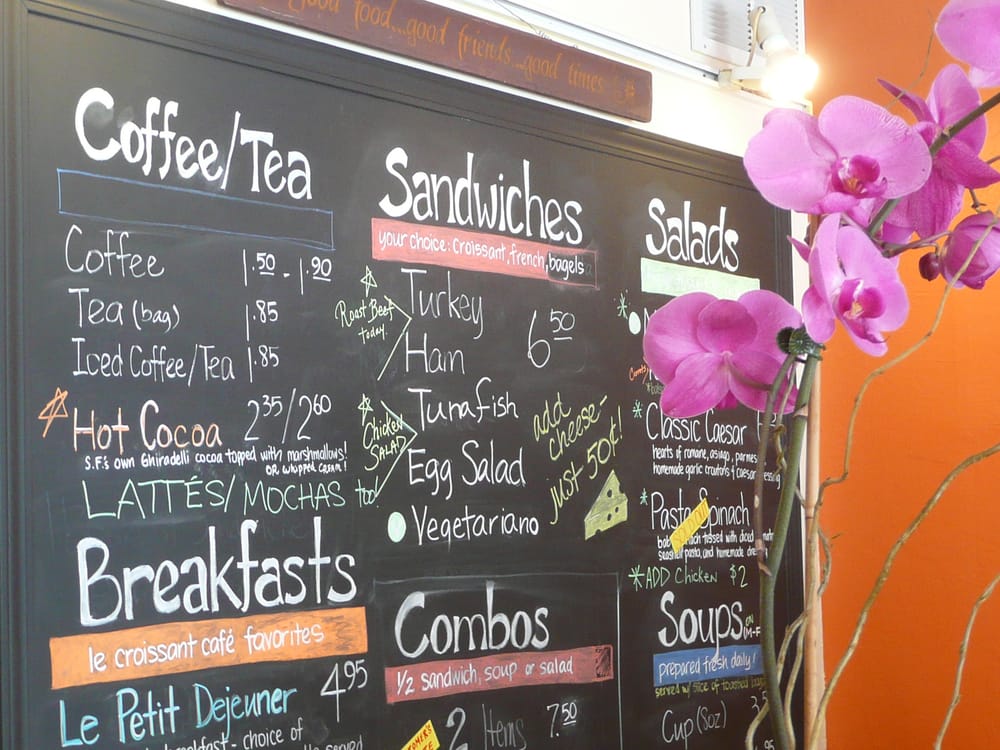 good food...good friends...good times
Coffee/Tea
Coffee 1.50 - 1.90
Tea (bag) 1.85
Iced Coffee/Tea 1.85
Hot Cocoa 2 35/2 60
S.F.'s own Ghiradelli cocoa topped with marshmallows!
or whipped cream!
LATTÉS/MOCHAS too!
Breakfasts
le croissant café favorites
Le Petit Dejeuner 4 95
breakfast - choice of
served
Sandwiches
your choice: croissant, french, bagels
Roast Beef
today.
Turkey
Han
6 50
Chicken
SALAD
Tunafish
Egg Salad
Vegetariano
add
cheese-
just 50¢!
Combos
1/2 sandwich, soup or salad
2 Items 7.50
Salads
Classic Caesar
hearts of romane, asiago, parmes
homemade garlic croutons & caesar
Pasta Spinach
tossed with diced
pasta, and homemade
ADD Chicken $2
Soups
(M-F
prepared fresh daily!
served w/ slice of toasted
Cup (8oz)